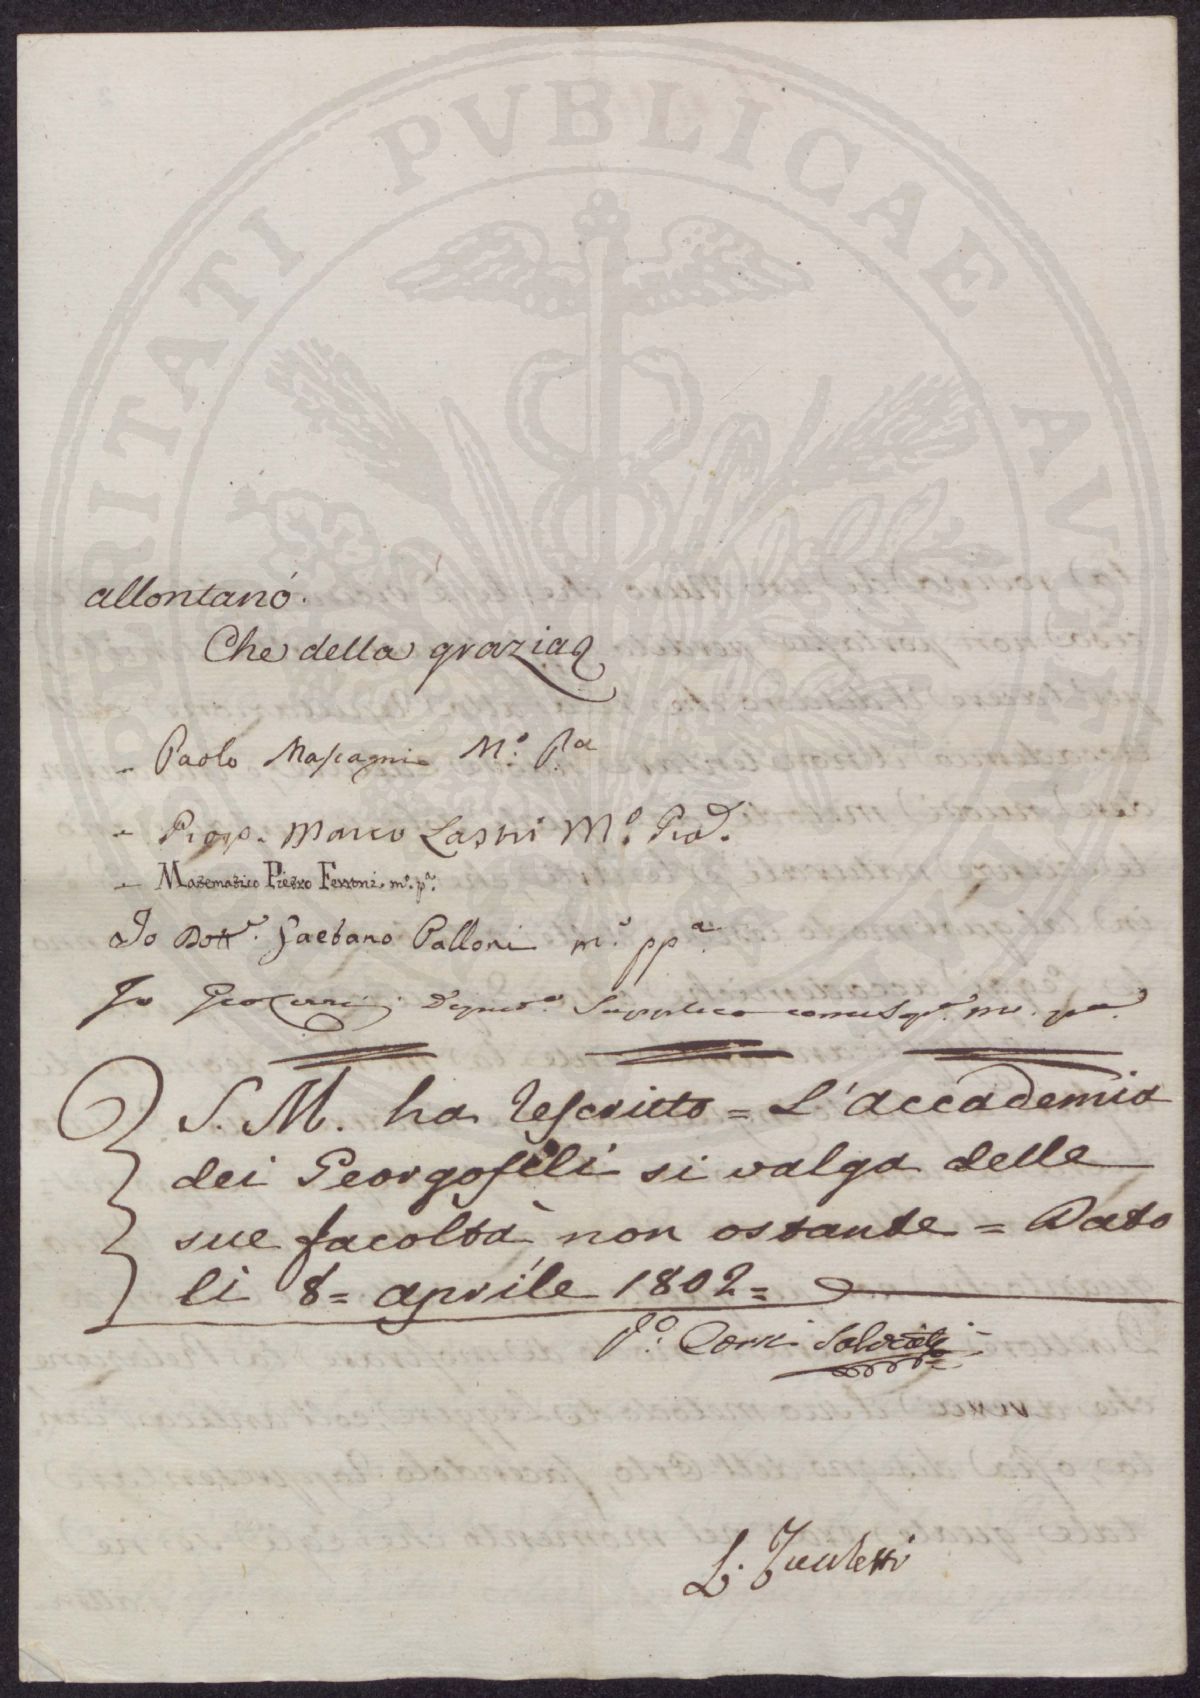 PROSPERITATI PVBLICAE AVGENDAE
allontanò.
Che della grazia
- Paolo Mascagni M.º P.ª
- Prop. Marco Lastri M.º Pria.
- Matematico Pietro Ferroni m.º p.ª
Io Dott.r Gaetano Palloni m.º pp.ª
Io Supplico come Sop.ª m.º p.ª
S. M. ha rescritto = L'accademia
dei Georgofili si valga delle
sue facoltà non ostante = Dato
li 8 = aprile 1802 =
F.º Corsi Salviati
L.